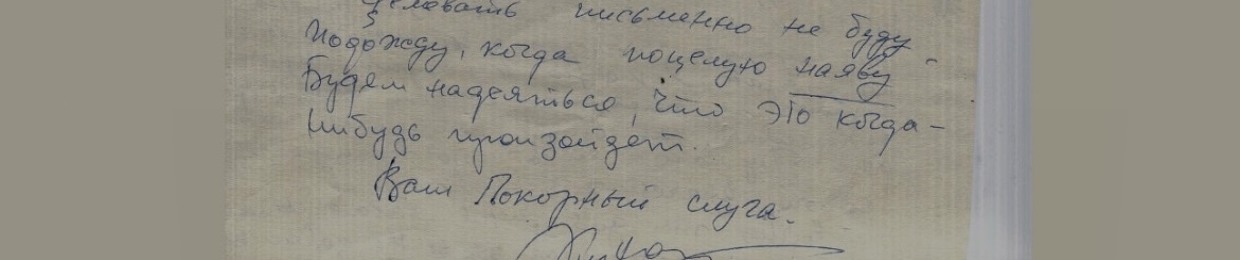 Целовать письменно не буду -
Подожду, когда поцелую наяву
Будем надеяться, что это когда-
нибудь произойдет.
Ваш Покорный слуга.